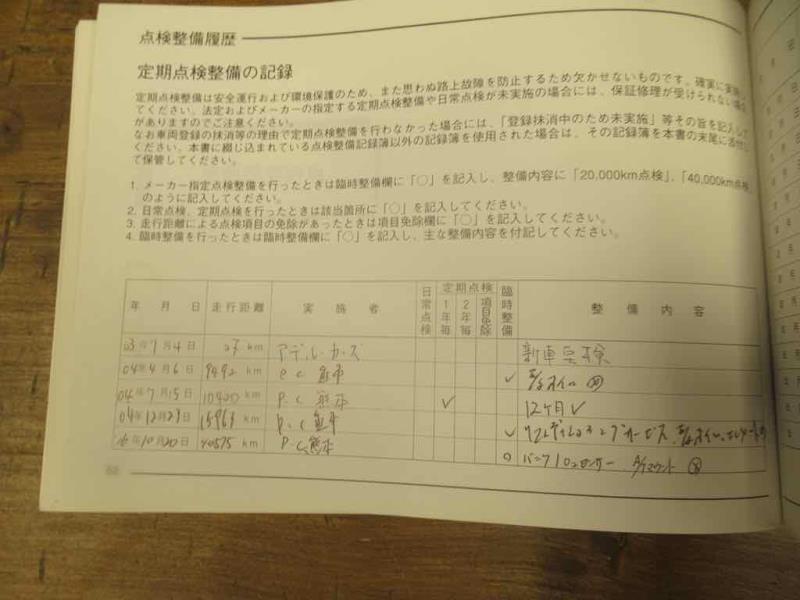 点検整備履歴
定期点検整備の記録
定期点検整備は安全運行および環境保護のため、また思わぬ路上故障を防止するため欠かせないものです。確実に実施し
てください。法定およびメーカーの指定する定期点検整備や日常点検が未実施の場合には、保証修理が受けられない場合
がありますのでご注意ください。
なお車両登録の抹消等の理由で定期点検整備を行わなかった場合には、「登録抹消中のため未実施」等その旨を記入して
ください。本書に綴じ込まれている点検整備記録簿以外の記録簿を使用された場合は、その記録簿を本書の末尾に添付し
て保管してください。
1. メーカー指定点検整備を行ったときは臨時整備欄に「○」を記入し、整備内容に「20,000km点検」、「40,000km点検」
のように記入してください。
2. 日常点検、定期点検を行ったときは該当箇所に「○」を記入してください。
3. 走行距離による点検項目の免除があったときは項目免除欄に「○」を記入してください。
4. 臨時整備を行ったときは臨時整備欄に「○」を記入し、主な整備内容を付記してください。
年 月 日 走行距離 実施者 日常点検 定期点検 1年毎 2年毎 項目免除 臨時整備 整備内容
03年7月4日 27 km アデル・カーズ 新車点検
04年4月6日 9492 km
04年7月15日 10420 km P.C 熊本 ✓ 12ヶ月✓
04年12月23日 km ✓
年10月20日 40575 km P.C熊本